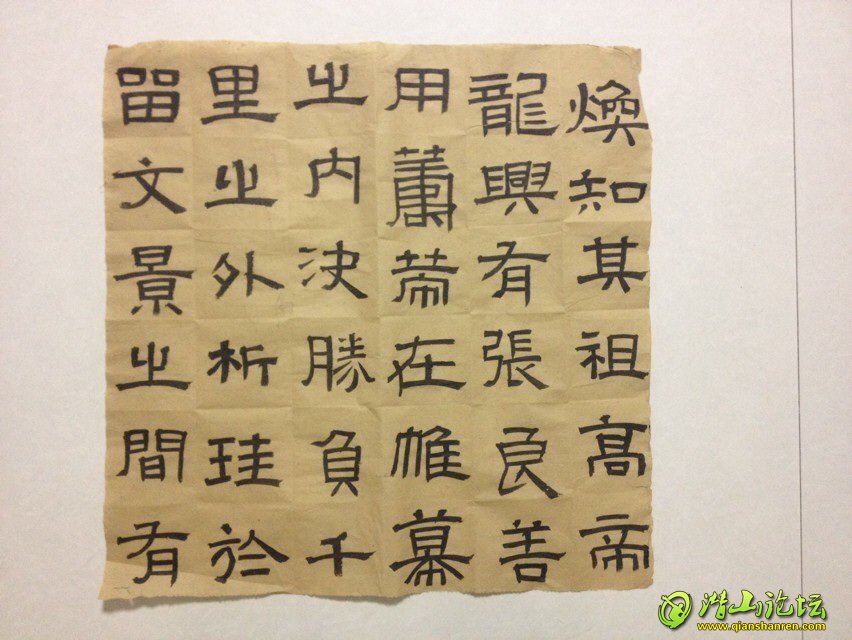 煥知其祖高帝
龍興有張良善
用在帷幕
之内決勝負千
里之外析珪於
留文景之間有
潜山论坛
www.qianshanren.com